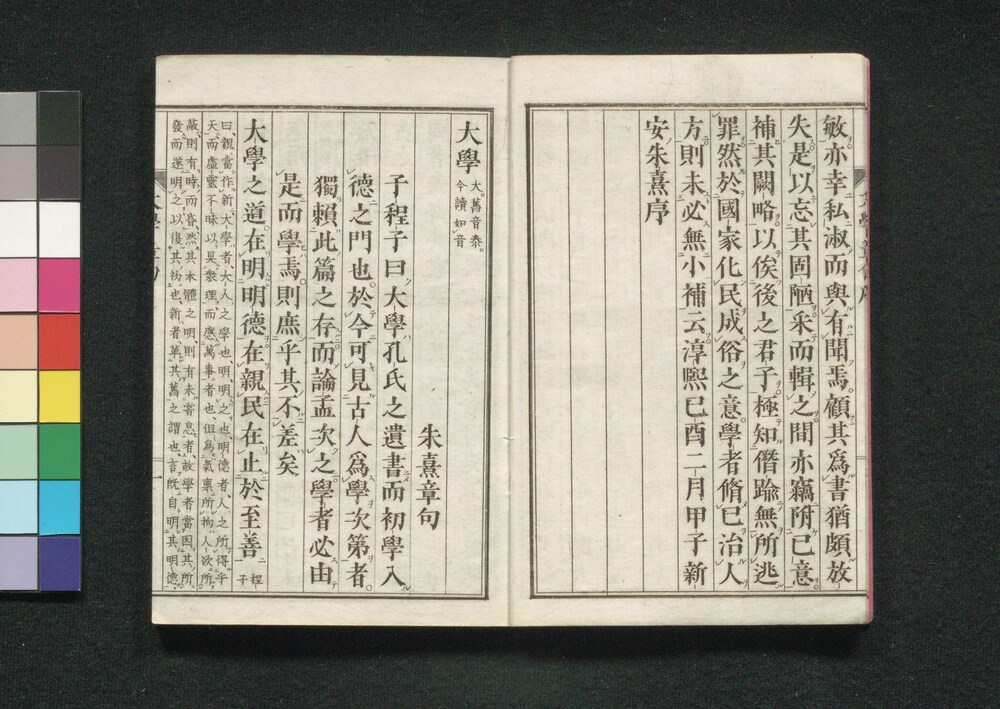 敏亦幸私淑而與有聞焉顧其爲書猶頗放
失是以忘其固陋采而輯之間亦竊附己意
補其闕略以俟後之君子極知僭踰無所逃
罪然於國家化民成俗之意學者脩己治人
方則未必無小補云淳熙己酉二月甲子新
安朱熹序
大學 大舊音泰
今讀如音
朱熹章句
子程子曰大學孔氏之遺書而初學入
德之門也於今可見古人爲學次第者
獨賴此篇之存而論孟次之學者必由
是而學焉則庶乎其不差矣
大學之道在明明德在親民在止於至善 程
子
曰親當作新大學者大人之學也明明之也明德者人之所得乎
天而虛靈不昧以具衆理而應萬事者也但爲氣禀所拘人欲所
蔽則有時而昏然其本體之明則有未嘗息者故學者當因其所
發而遂明之以復其初也新者革其舊之謂也言旣自明其明德